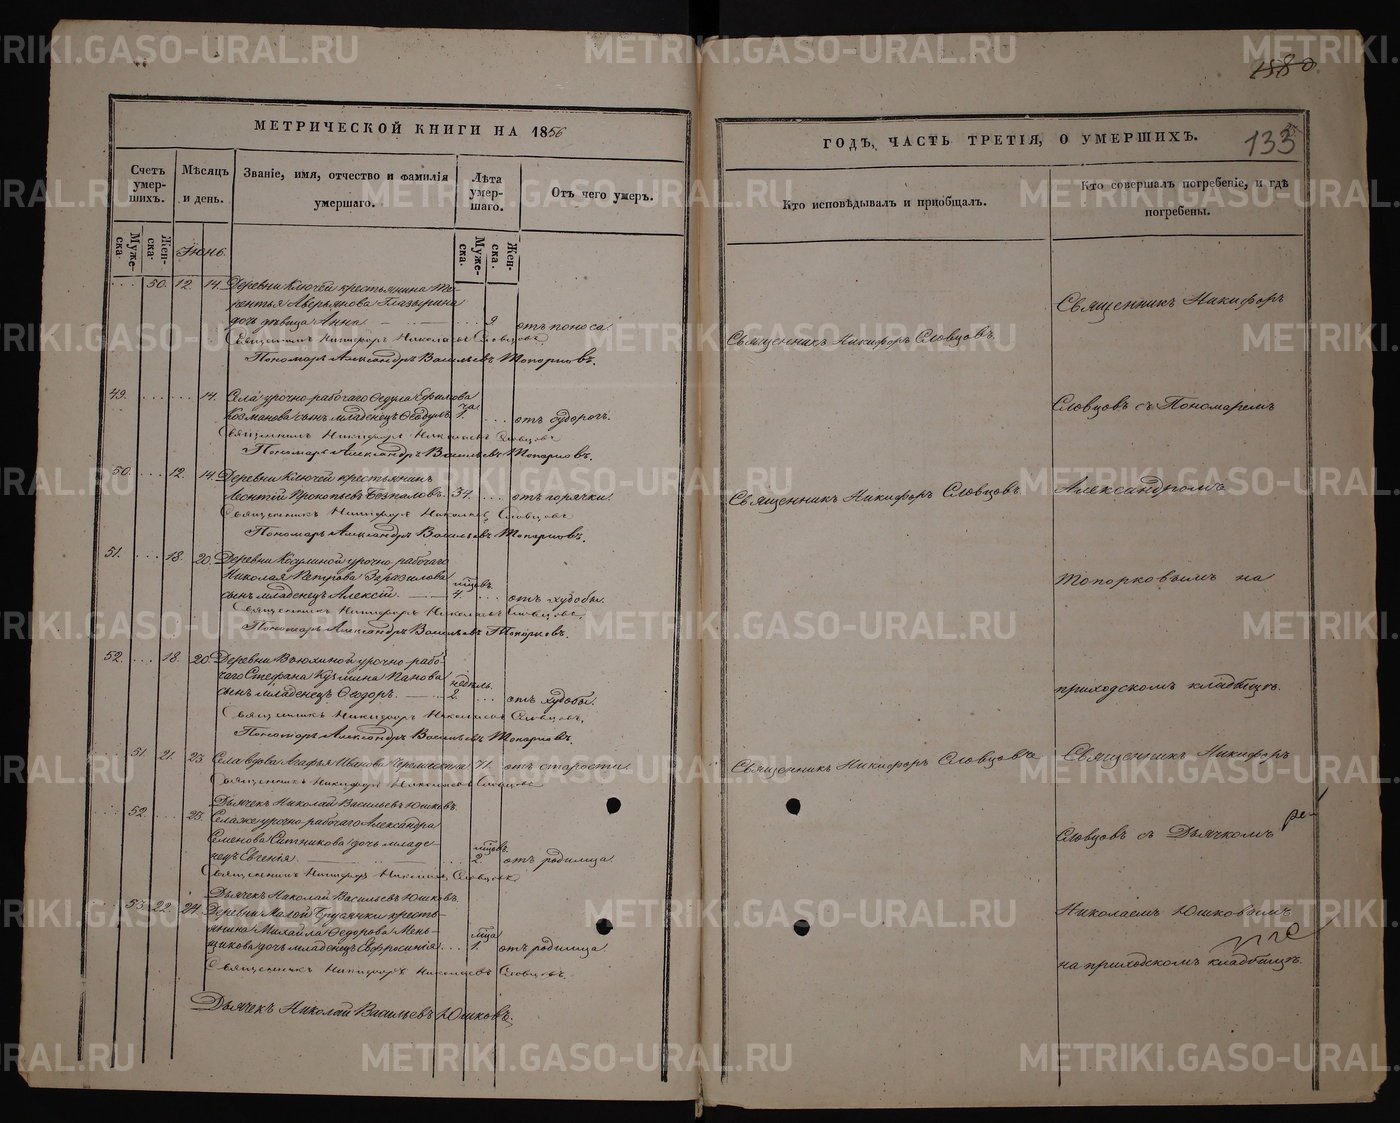 1880
МЕТРИЧЕСКОЙ КНИГИ НА 1856
ГОДЪ, ЧАСТЬ ТРЕТІЯ, О УМЕРШИХЪ.
133
Счетъ умер-шихъ.
Мѣсяцъ и день.
Званіе, имя, отчество и фамилія умершаго.
Лѣта умер-шаго.
Отъ чего умеръ.
Кто исповѣдывалъ и пріобщалъ.
Кто совершалъ погребеніе, и гдѣ погребены.
Муже-ска.
Жен-ска.
Іюнь.
Муже-ска.
Жен-ска.
50. 12. 14. Деревни Ключей крестьянина Те-
рентья Аверьянова Глазырина
дочь дѣвица Анна 9 отъ поноса.
Священникъ Никифоръ Николаевъ Словцовъ
Пономарь Александръ Васильевъ Топорковъ.
Священникъ Никифоръ Словцовъ.
Священникъ Никифоръ
49. 14. Села урочно-рабочаго Федула Ефимова
сынъ младенецъ отъ судорогъ.
Священникъ Никифоръ Николаевъ Словцовъ
Пономарь Александръ Васильевъ Топорковъ.
Словцовъ съ Пономаремъ
50. 12. 14. Деревни Ключей крестьянинъ
Леонтій Прокопьевъ 34. отъ горячки.
Священникъ Никифоръ Николаевъ Словцовъ
Пономарь Александръ Васильевъ Топорковъ.
Священникъ Никифоръ Словцовъ
Александромъ
51. 18. 20. Деревни Косулиной урочно-рабочаго
Николая Петрова
сынъ младенецъ Алексій мцовъ 4. отъ худобы.
Священникъ Никифоръ Николаевъ Словцовъ
Пономарь Александръ Васильевъ Топорковъ.
Топорковымъ на
52. 18. 20. Деревни Вьюхиной урочно-рабо-
чаго Стефана Кузмина Панова недѣль
сынъ младенецъ Ѳеодоръ. 2. отъ худобы.
Священникъ Никифоръ Николаевъ Словцовъ.
Пономарь Александръ Васильевъ Топорковъ.
приходскомъ кладбищѣ.
51. 21. 23. Села вдова Агафья Иванова 71. отъ старости.
Священникъ Никифоръ Николаевъ Словцовъ
Дьячекъ Николай Васильевъ Юшковъ.
Священникъ Никифоръ Словцовъ
Священникъ Никифоръ
52. 23. Села же урочно-рабочаго Александра
Семенова Ситникова дочь младе- мцовъ
нецъ Евгенія. 2. отъ родимца
Священникъ Никифоръ Николаевъ Словцовъ
Дьячекъ Николай Васильевъ Юшковъ.
Словцовъ съ Дьячкомъ
53. 22. 24. Деревни Малой Брусянки кресть-
янина Михайла Ѳедорова Мень- мца
щикова дочь младенецъ Евфросинія 1. отъ родимца
Священникъ Никифоръ Николаевъ Словцовъ.
Дьячекъ Николай Васильевъ Юшковъ.
Николаемъ Юшковымъ
на приходскомъ кладбищѣ.
METRIKI.GASO-URAL.RU